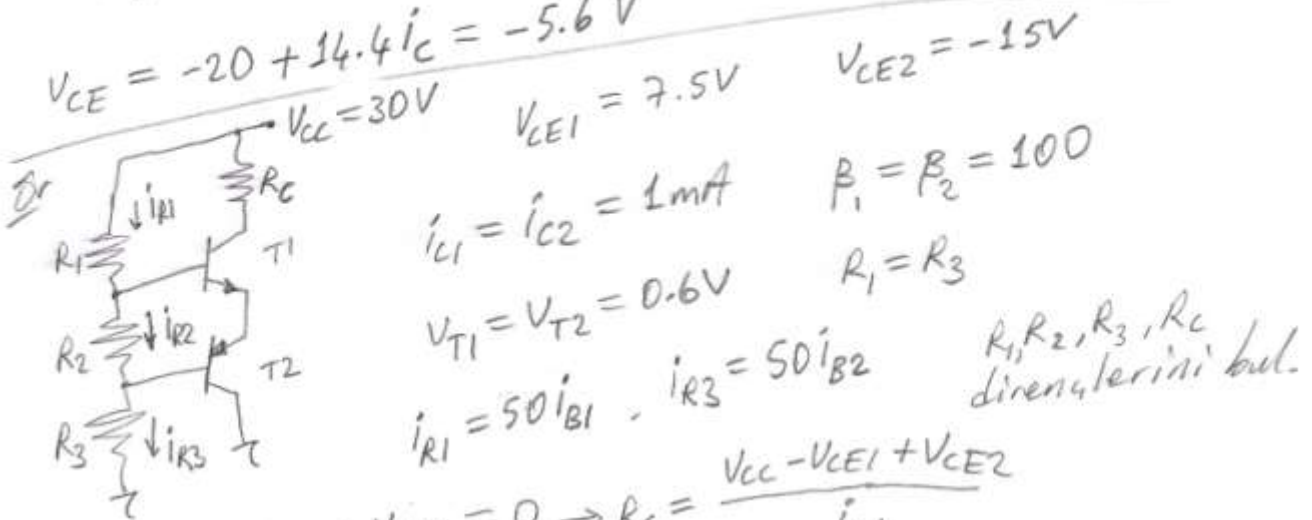 V_CE = -20 + 14.4 i_C = -5.6 V
Ör
V_CC = 30V
V_CE1 = 7.5V
V_CE2 = -15V
i_C1 = i_C2 = 1mA
β_1 = β_2 = 100
V_T1 = V_T2 = 0.6V
R_1 = R_3
i_R1 = 50 i_B1 , i_R3 = 50 i_B2
R_1, R_2, R_3, R_C
dirençlerini bul.
R_C
↓ i_R1
R_1
T1
R_2
↓ i_R2
T2
R_3
↓ i_R3
= 0 → R_C = V_CC - V_CE1 + V_CE2